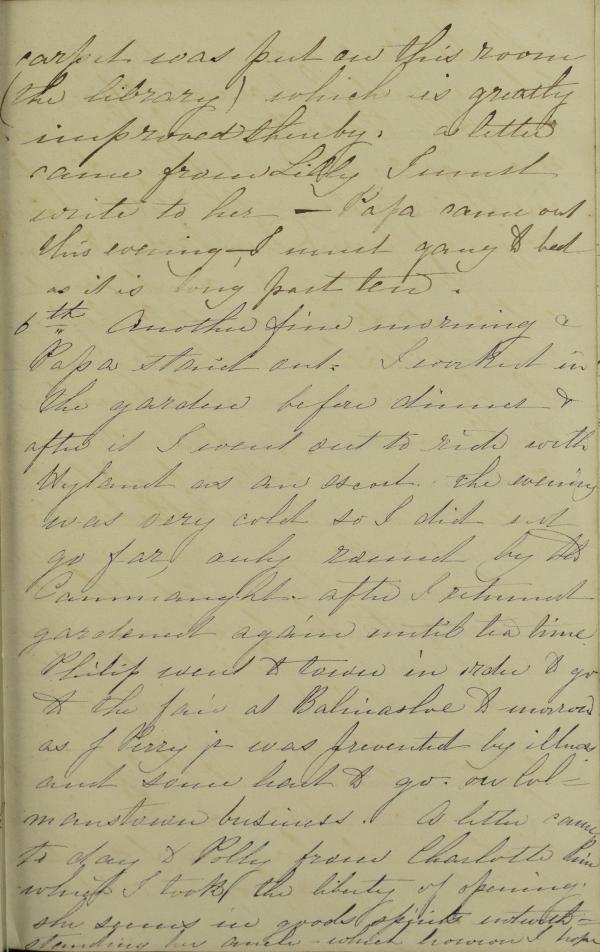 carpet was put on this room
(the library) which is greatly
improved thereby. a letter
came from Lilly I must
write to her — Papa came out
this evening — I must gang to bed
as it is long past ten.
6th Another fine morning &
Papa staid out. I worked in
the garden before dinner &
after it I went out to ride with
Hyland as an escort. the evening
was very cold so I did not
go far, only round by the
Cammanaght. after I returned
gardened again until tea time
Philip went to town in order to go
to the fair at Balinasloe to morrow
as J Perry jr was prevented by illness
and some had to go. on Col=
manstown business. A letter came
to day to Polly from Charlotte Pim
which I took the liberty of opening.
she seems in good spirits notwith=
standing her which I hope